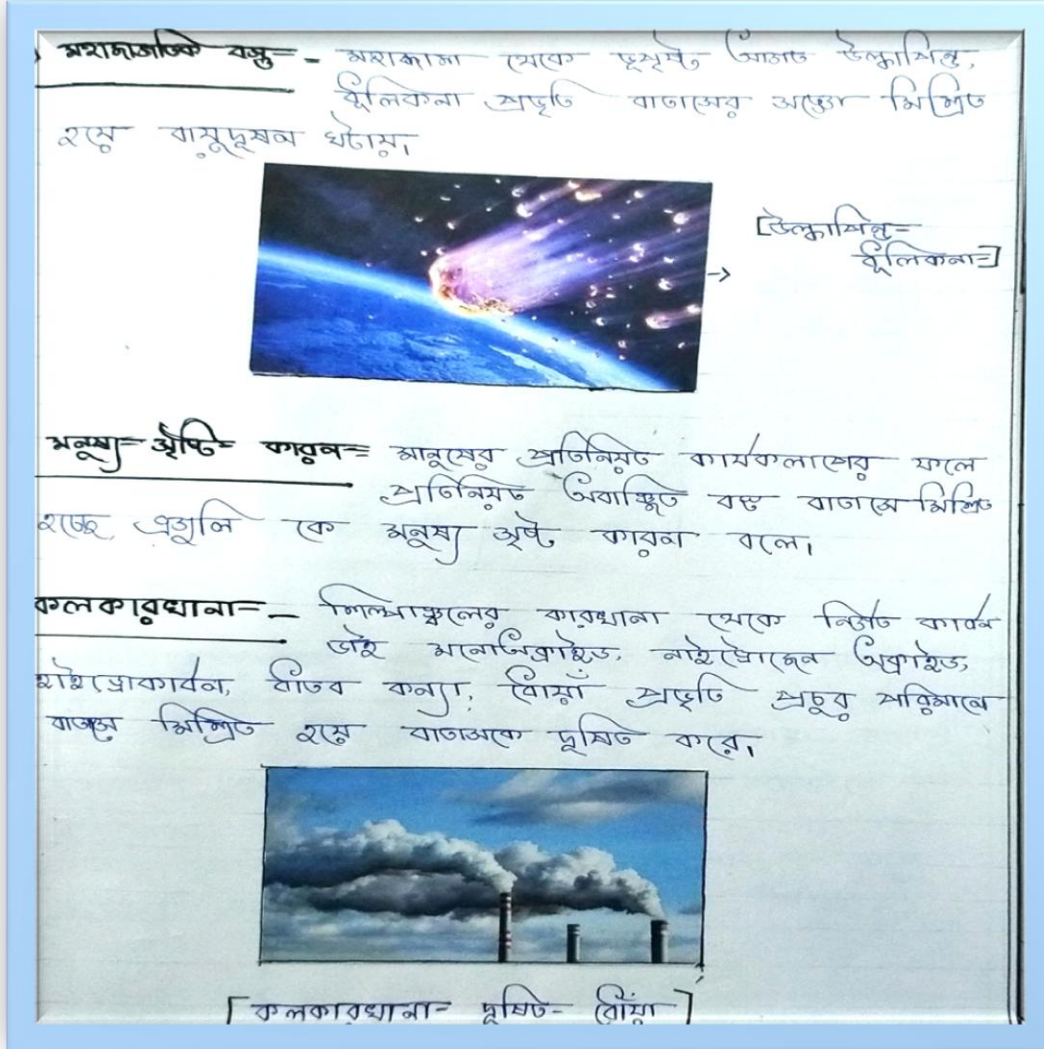 মহাজাগতিক বস্তু - মহাকাশ থেকে ভূপৃষ্ঠে আগত উল্কাপিন্ড,
ধূলিকনা প্রভৃতি বাতাসের সঙ্গে মিশ্রিত
হয়ে বায়ুদূষন ঘটায়।
[উল্কাপিন্ড-
ধূলিকনা-]
মনুষ্য- সৃষ্টি- কারন= মানুষের প্রতিনিয়ত কার্যকলাপের ফলে
প্রতিনিয়ত অবাঞ্ছিত বস্তু বাতাসে মিশ্রিত
হচ্ছে, এগুলি কে মনুষ্য সৃষ্ট কারন বলে।
কলকারখানা- - শিল্পাঞ্চলের কারখানা থেকে নির্গত কার্বন
ডাই মনোঅক্সাইড, নাইট্রোজেন অক্সাইড,
হাইড্রোকার্বন, ধাতব কন্যা, ধোঁয়া প্রভৃতি প্রচুর পরিমানে
বাতাসে মিশ্রিত হয়ে বাতাসকে দূষিত করে।
[কলকারখানা- দূষিত- ধোঁয়া]